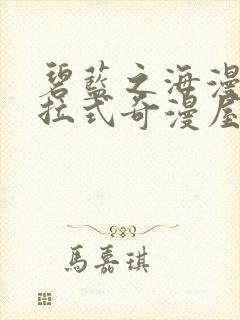 碧藍之海漫
拉式奇漫屋
馬嘉琪